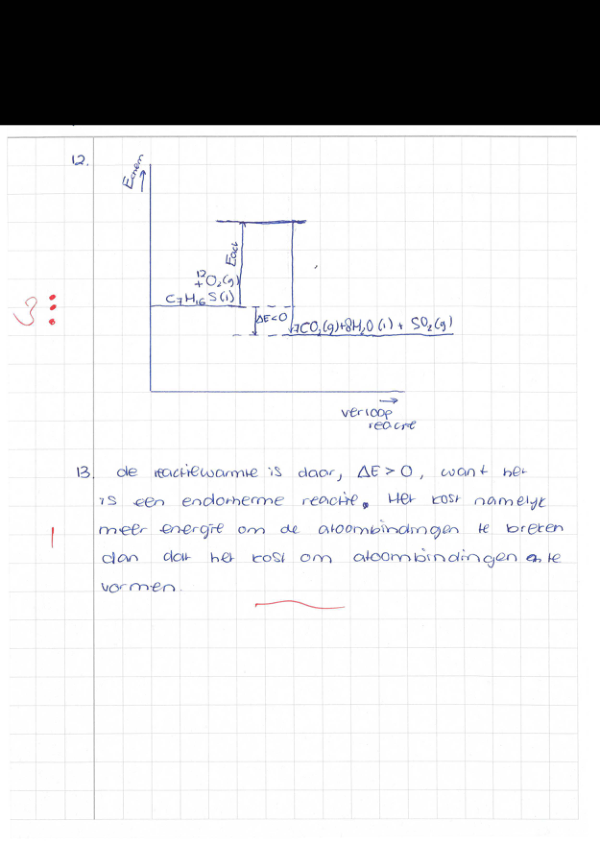 12.
Echem
Eact
12
+O₂(g)
C₇H₁₆S(l)
ΔE<0
7CO₂(g)+8H₂O(l) + SO₂(g)
3
verloop
reactie
13. de reactiewarmte is daar, ΔE > 0, want het
is een endotherme reactie. Het kost namelijk
1
meer energie om de atoombindingen te breken
dan dat het kost om atoombindingen te
vormen.